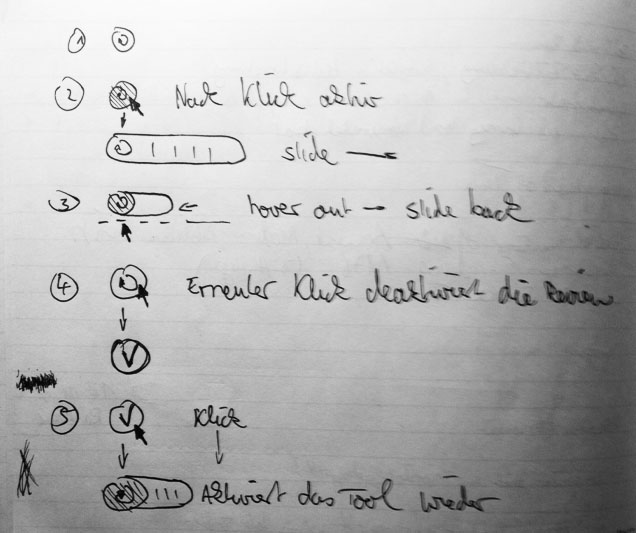 1
2 Nach Klick aktiv
slide →
3 ← hover out → slide back
4 Erneuter Klick deaktiviert die Review
5 Klick
Aktiviert das Tool wieder